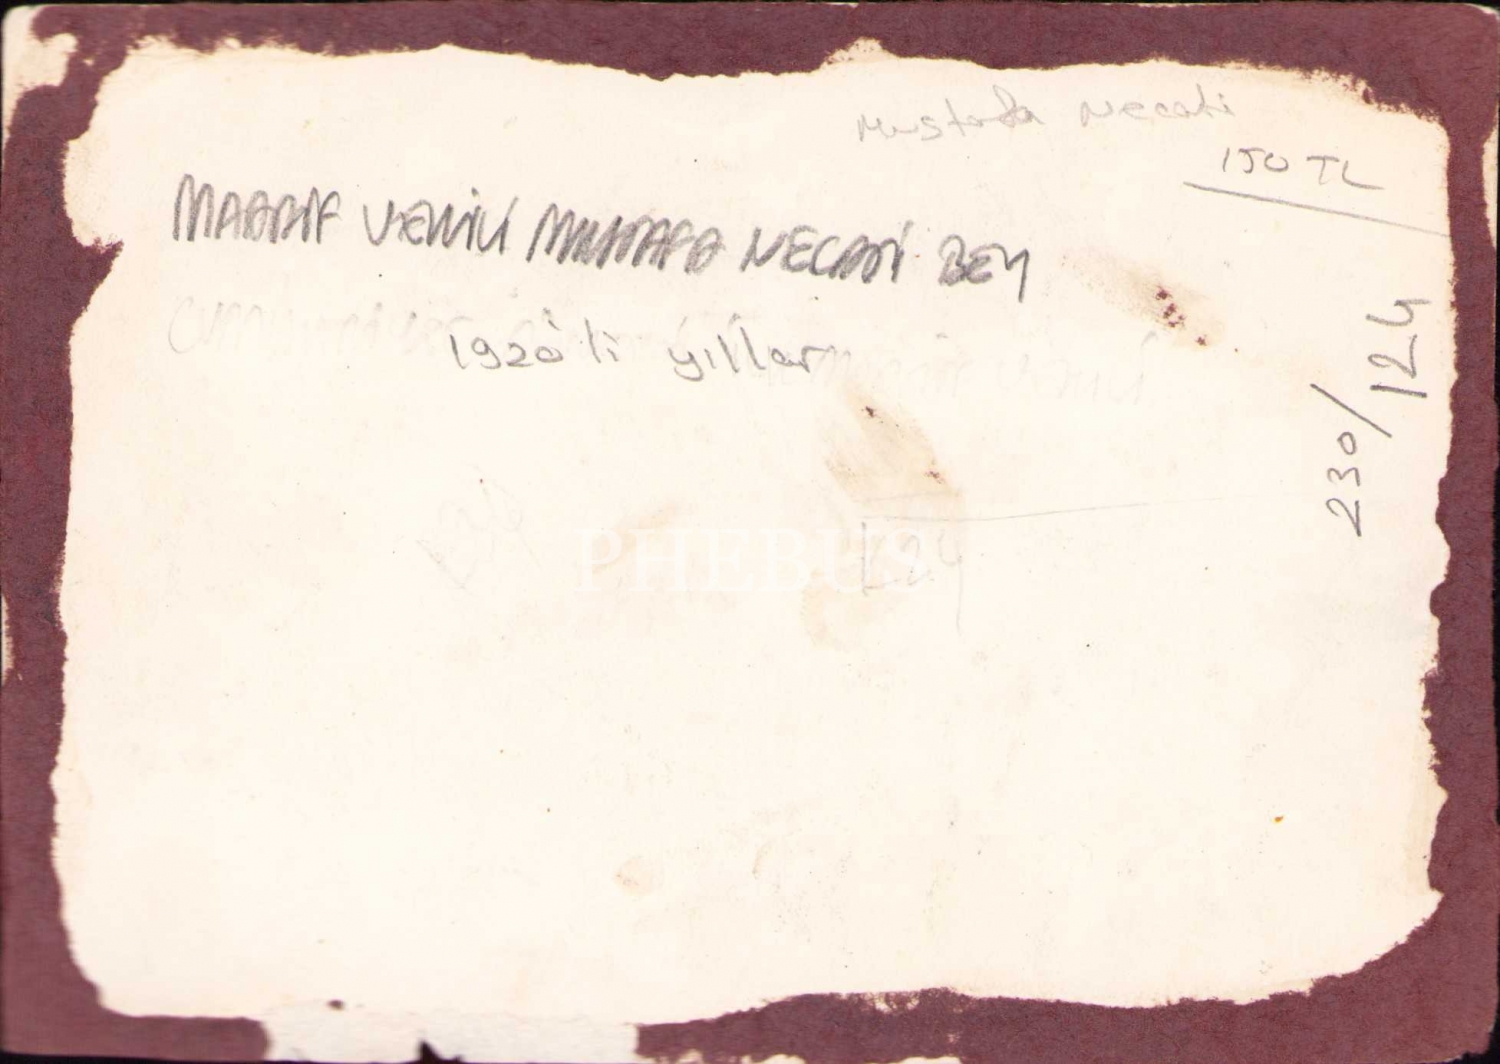 Mustafa Necati
150 TL
MAARİF VEKİLİ MUSTAFA NECATİ BEY
1920'li yıllar
230/124
124
PHEBUS